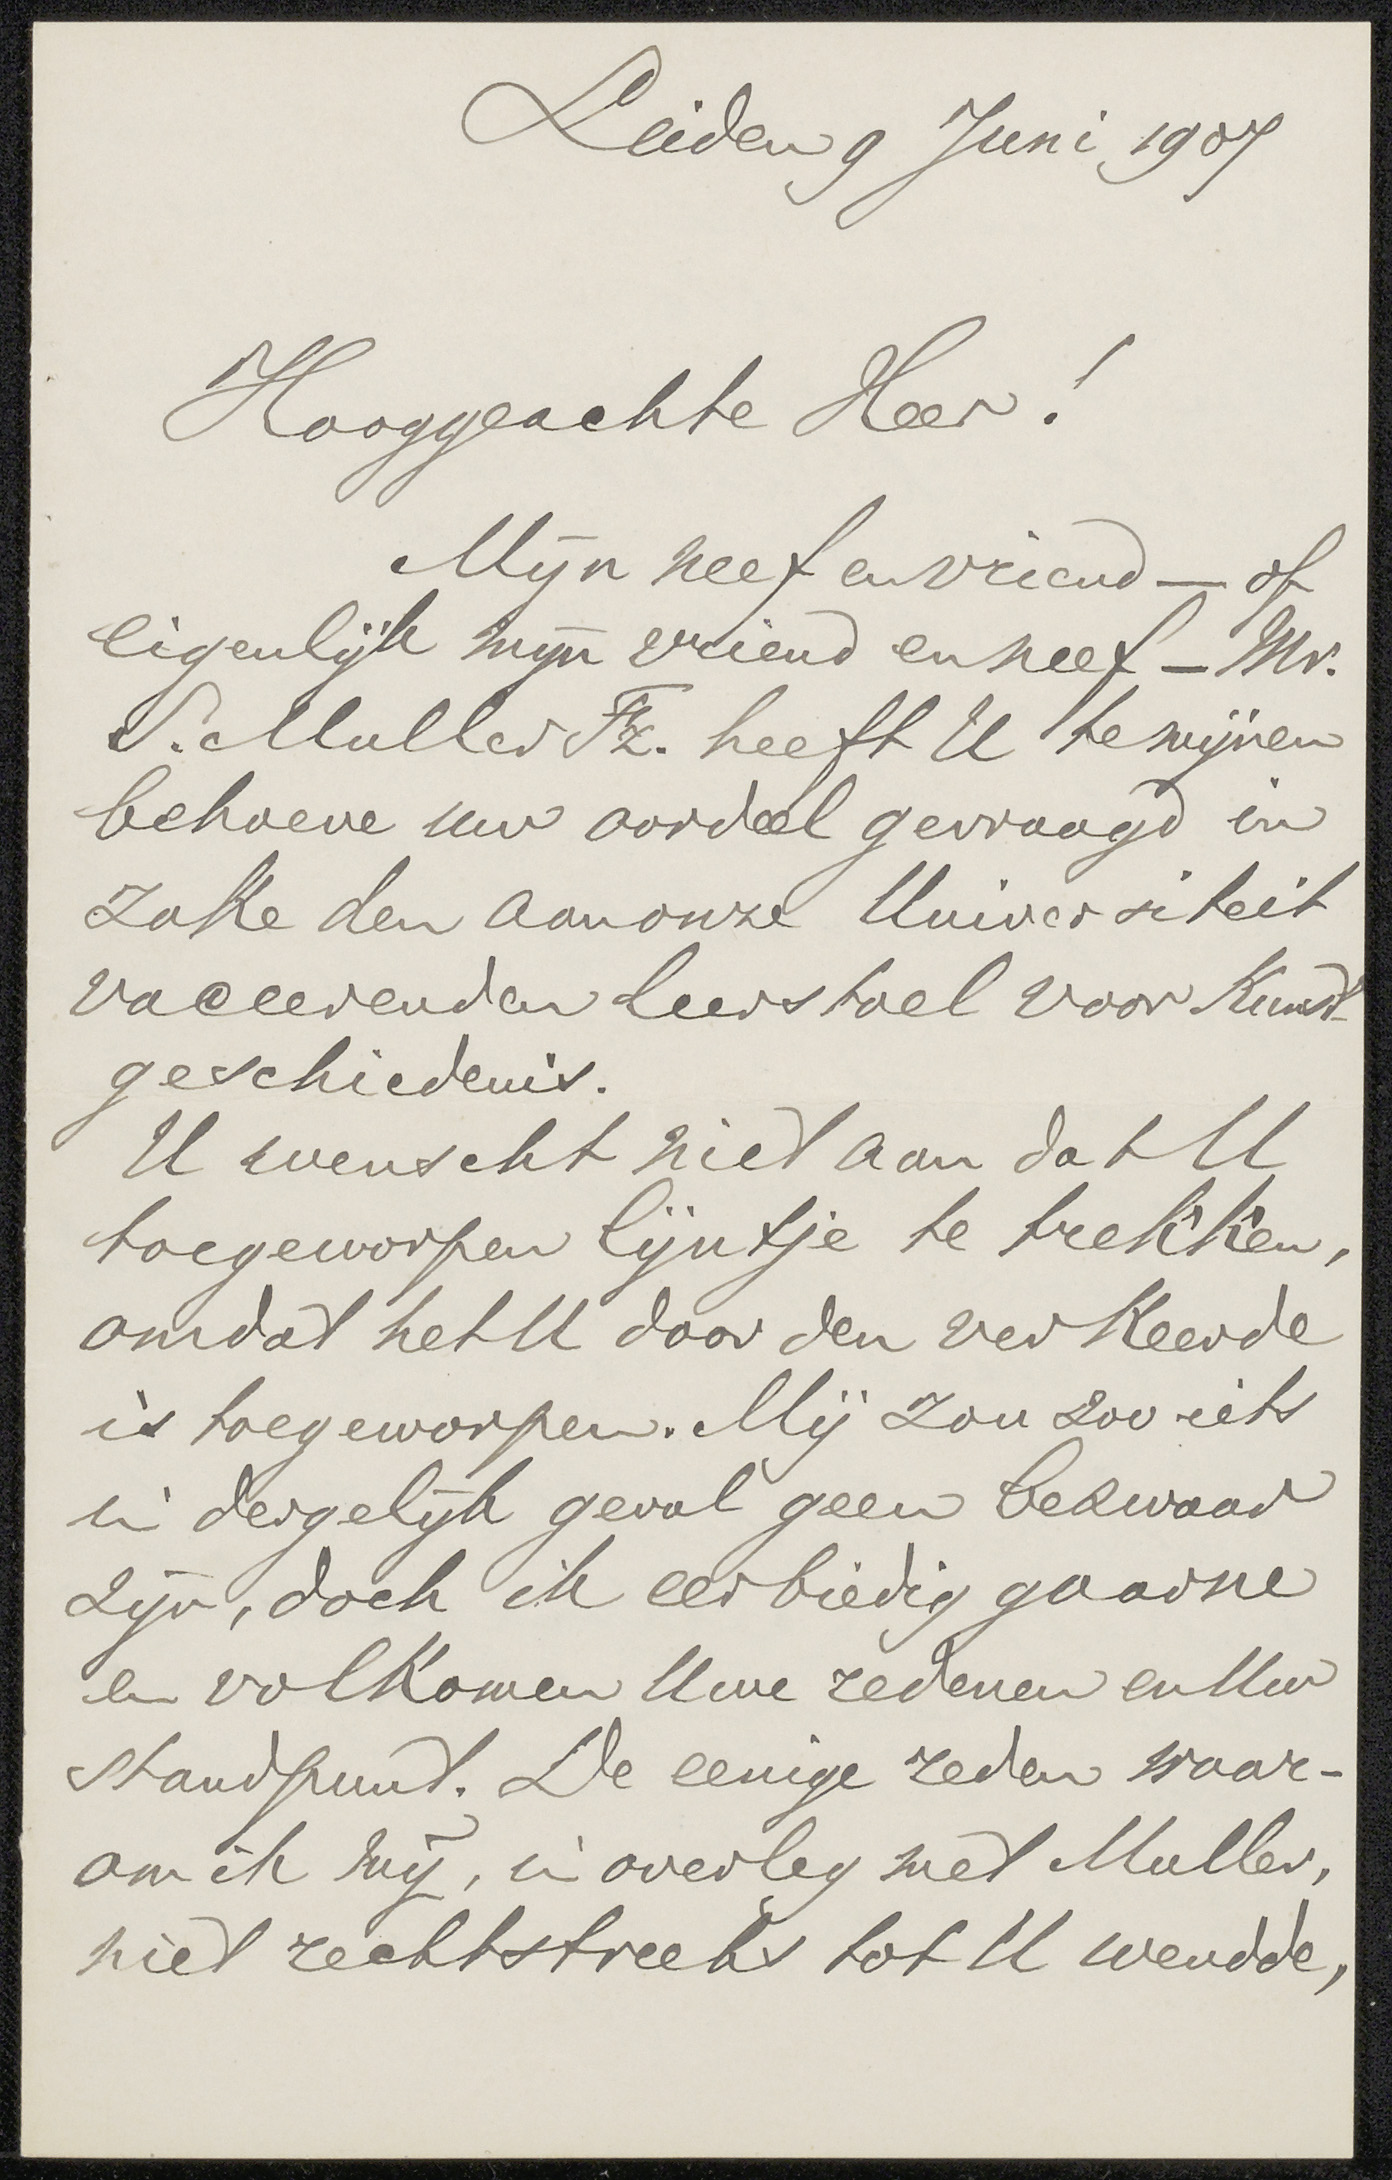 Leiden 9 Juni 1907
Hooggeachte Heer!
Mijn neef en vriend — of
eigenlijk mijn vriend en neef — Mr.
S. Muller Fz. heeft U te mijnen
behoeve uw oordeel gevraagd in
zake den aan onze Universiteit
vaceerenden leerstoel voor Kunst-
geschiedenis.
U wenscht niet aan dat U
toegeworpen lijntje te trekken,
omdat het U door den verkeerde
is toegeworpen. Mij zou zoo iets
in dergelijk geval geen bezwaar
zijn, doch ik eerbiedig gaarne
en volkomen Uwe redenen en Uw
standpunt. De eenige reden waar-
om ik mij, in overleg met Muller,
niet rechtstreeks tot U wendde,